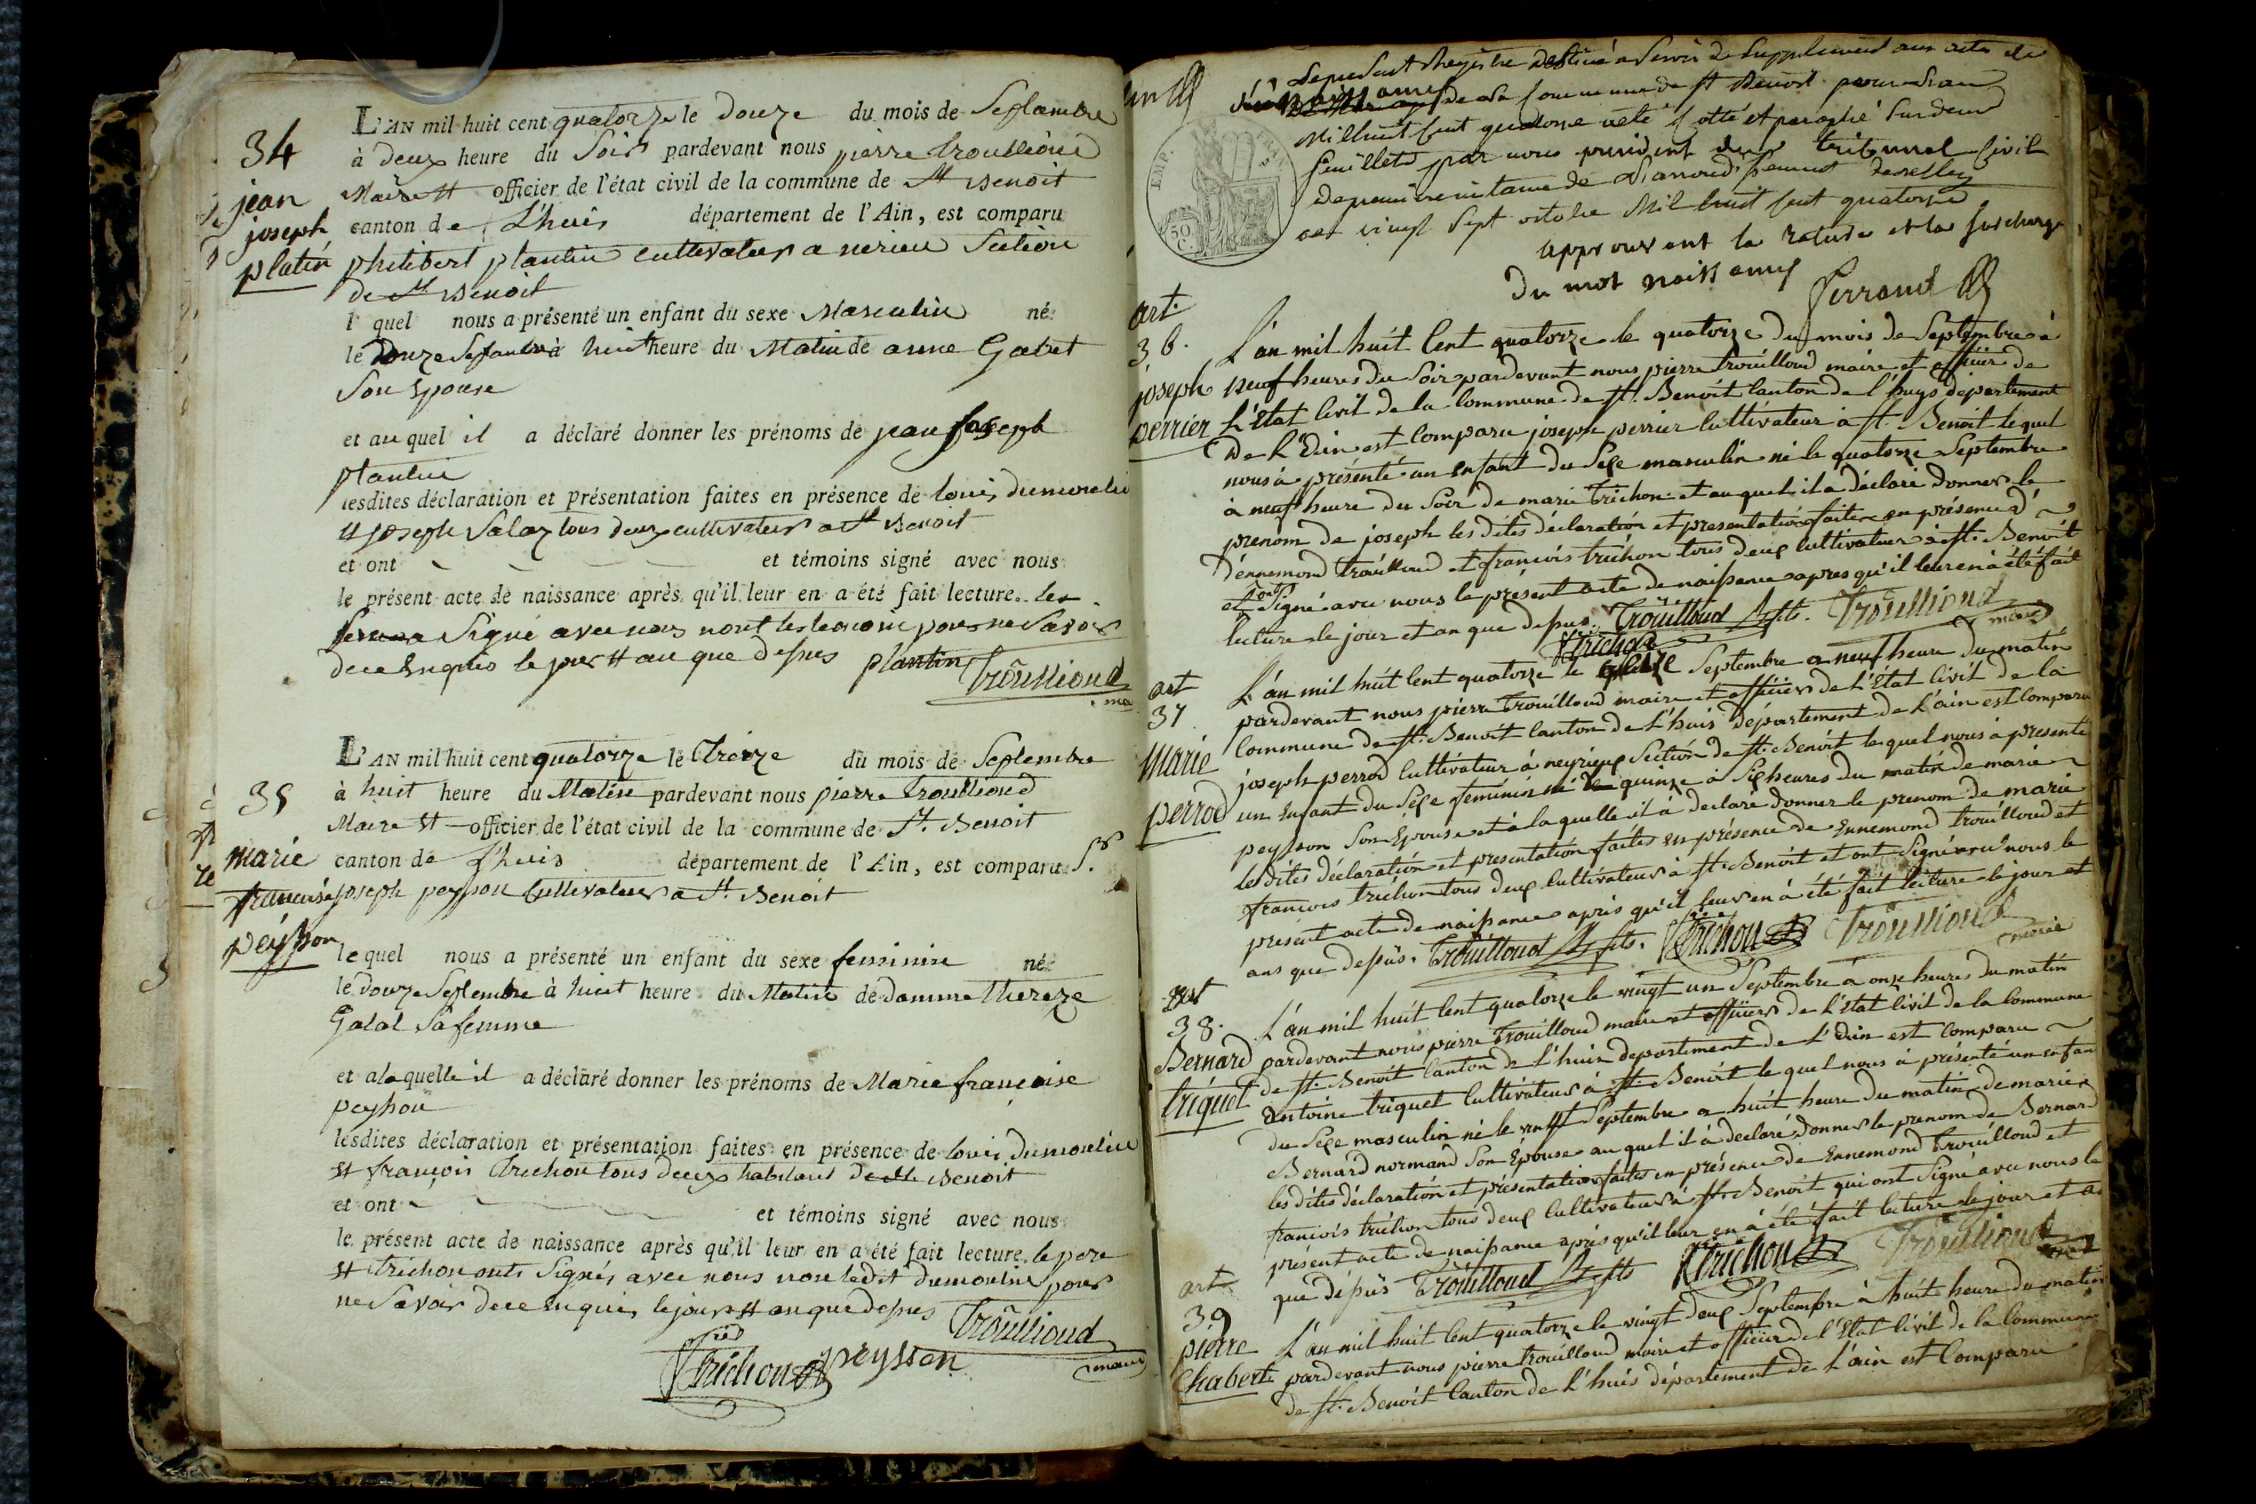 34
jean
joseph
platin
L'AN mil huit cent quatorze le douze du mois de Septambre
à deux heure du Soir pardevant nous pierre trouilloud
Maire et officier de l'état civil de la commune de st Benoit
canton de L'huis département de l'Ain, est comparu
philibert plantin cultivateur a nerieu Section
de st Benoit
l quel nous a présenté un enfant du sexe Masculin né
le douze Septambre à huit heure du Matin de anne Gabet
Son Epouse
et au quel il a déclaré donner les prénoms de jean joseph
plantin
lesdites déclaration et présentation faites en présence de louis dumoulin
et joseph Salaz tous deux cultivateur a st Benoit
et ont et témoins signé avec nous
le présent acte de naissance après qu'il leur en a été fait lecture. le
Signé avec nous nont les temoins pour ne Savoir
de ce Enquis le jour et an que dessus plantin
trouilloud
ma
35
marie
francoise
peysson
L'AN mil huit cent quatorze le Treize du mois de Septembre
à huit heure du Matin pardevant nous pierre trouilloud
Maire et officier de l'état civil de la commune de St. Benoit
canton de L'huis département de l'Ain, est comparu Sr
joseph peysson Cultivateur a St. Benoit
le quel nous a présenté un enfant du sexe feminin né
le douze Septembre à huit heure du Matin de damme thereze
Galat Sa femme
et a laquelle il a déclaré donner les prénoms de Marie françoise
peyson
lesdites déclaration et présentation faites en présence de louis dumoulin
et françois Trichon tous deux habitant de st Benoit
et ont et témoins signé avec nous
le présent acte de naissance après qu'il leur en a été fait lecture. le pere
et trichon onts Signés avec nous non ledit dumoulin pour
ne Savoir de ce Enquis le jour et an que dessus trouilloud
maire
ftrichon peysson
Le present Registre destiné a Servir de Supplement aux actes de
naissances de la Commune de st Benoit pour l'an
Mil huit Cent quatorze a été Cotté et paraphé Sur deux
feuillets par nous president du tribunal Civil
de premiere instance de l'arrondissement de Belley
ce vingt Sept octobre Mil huit Cent quatorze
approuvant la rature et la surcharge
du mot naissances
Ferrand
EMP. FRAN.
50 C.
art.
36.
joseph
perrier
L'an mil huit Cent quatorze le quatorze du mois de Septembre à
neuf heures du Soir pardevant nous pierre trouilloud maire et officier de
L'Etat Civil de la Commune de st. Benoit Canton de l'huys departement
de L'Ain est Comparu joseph perrier Cultivateur à st. Benoit lequel
nous à présenté un enfant du Sexe masculin né le quatorze Septembre
à neuf heure du Soir de marie trichon et au quel il a déclaré donner le
prenom de joseph les dites déclaration et presentation faites en présence d'
d'ennemond trouilloud et francois trichon tous deux cultivateur à st. Benoit
et ont Signé avec nous le présent acte de naissance apres qu'il leur en à été fait
lecture le jour et an que dessus. trouilloud fils. trouilloud
ftrichon maire
art
37
Marie
perrod
L'an mil huit Cent quatorze le quinze Septembre a neuf heure du matin
pardevant nous pierre trouilloud maire et officier de L'Etat Civil de la
Commune de st. Benoit Canton de L'huis département de L'ain est Comparu
joseph perrod Cultivateur à neyrieux Section de st. Benoit lequel nous à présenté
un Enfant du Sexe feminin né le quinze à Six heures du matin de marie
peysson Son Epouse et à la quelle il à declaré donner le prenom de marie
les dites déclaration et presentation faites en présence de Ennemond trouilloud et
francois trichon tous deux Cultivateur à st. Benoit et ont Signé avec nous le
present acte de naissance après qu'il leur en à été fait lecture le jour et
ans que dessus. trouilloud fils. ftrichon trouilloud
maire
art
38.
Bernard
triquet
L'an mil huit Cent quatorze le vingt un Septembre à onze heures du matin
pardevant nous pierre trouilloud maire et officier de L'Etat Civil de la Commune
de st. Benoit Canton de L'huis departement de L'Ain est Comparu
Antoine triquet Cultivateur à st. Benoit le quel nous à présenté un enfan
du Sexe masculin né le vingt Septembre a huit heure du matin de marie
Bernard normand Son Epouse au quel il à declaré donner le prenom de Bernard
les dites déclaration et présentation faites en présence de Ennemond trouilloud et
francois trichon tous deux Cultivateur à st. Benoit qui ont Signé avec nous le
présent acte de naissance après qu'il leur en à été fait lecture le jour et a
que dessus trouilloud fils ftrichon trouilloud
art
39
pierre
Chabert
L'an mil huit Cent quatorze le vingt deux Septembre à huit heure du matin
pardevant nous pierre trouilloud maire et officier de l'Etat Civil de la Commune
de st. Benoit Canton de L'huis département de L'ain est Comparu